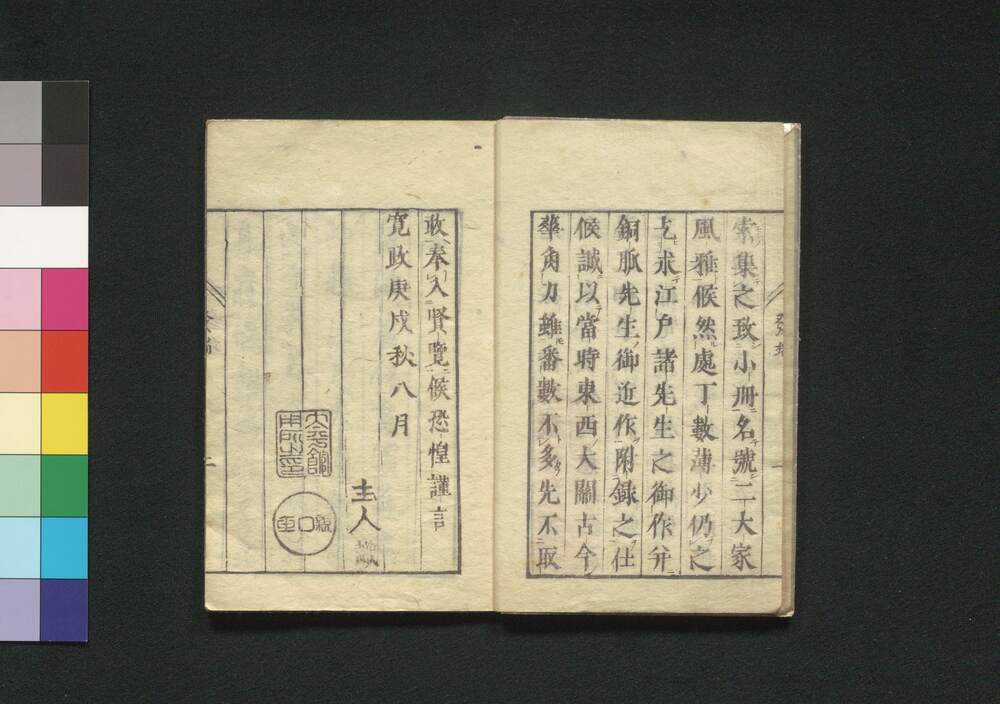 索集之致小册名號二大家
風雅候然處丁數薄少仍之
乞求江戸諸先生之御作并
銅脈先生御近作附録之仕
候誠以當時東西大關古今
華角力雖番數不多先不取
敢奉入賢覽候恐惶謹言
寛政庚戌秋八月
主人